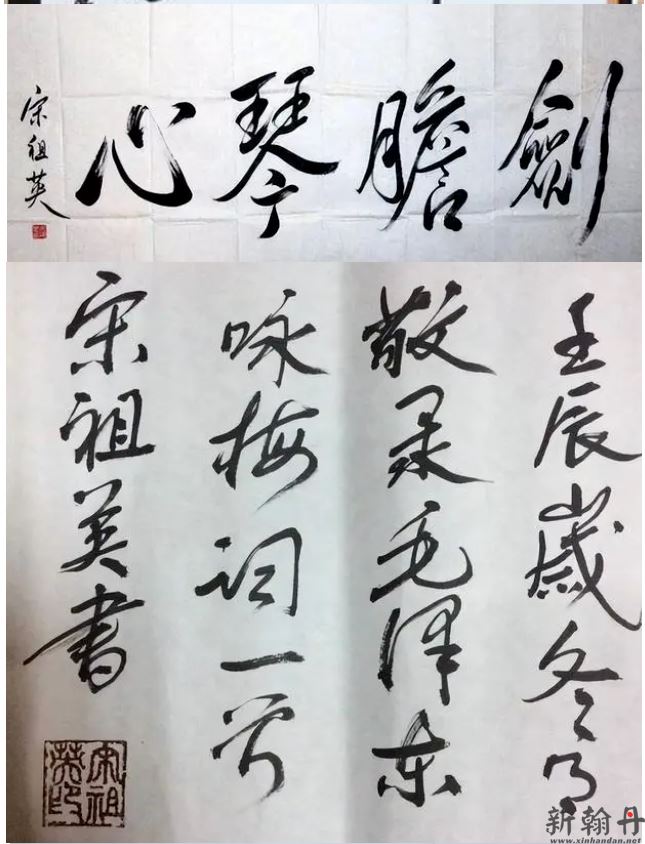 劍膽琴心
宋祖英
壬辰歲冬月
敬录毛泽东
咏梅词一首
宋祖英書
宋祖英印
新翰丹
www.xinhandan.net